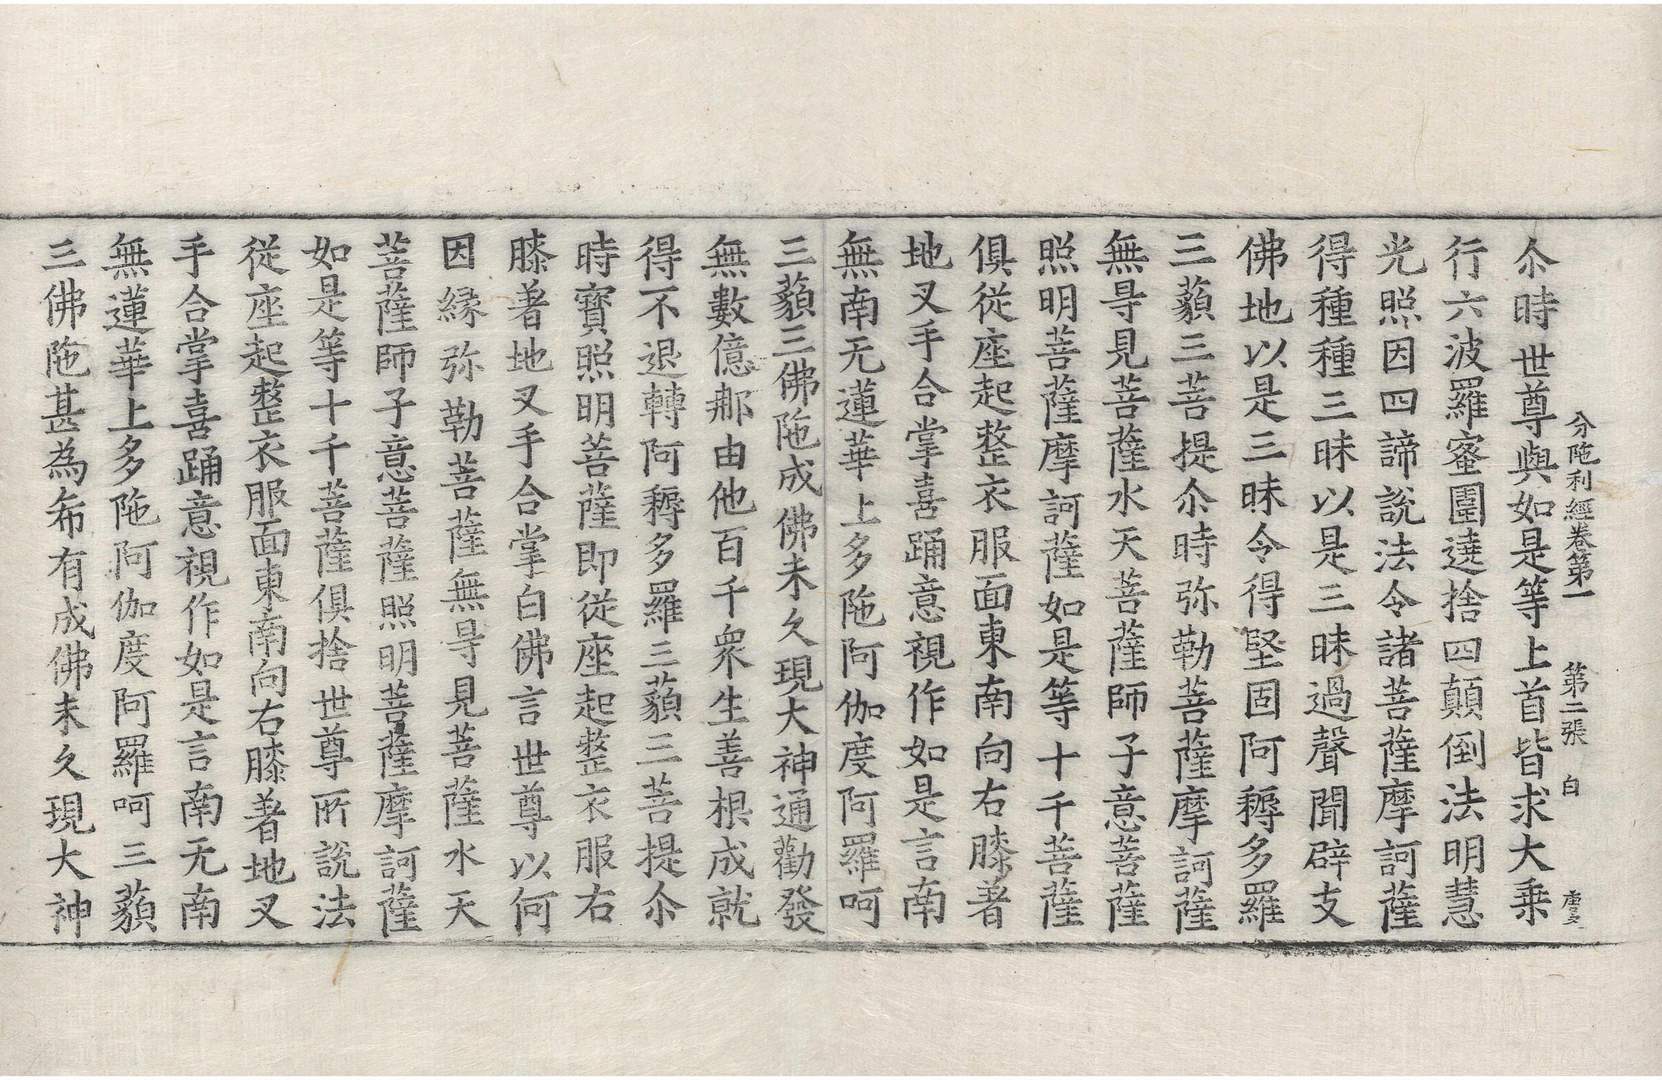 分陁利經卷第一　第二張　白
尒時世尊與如是等上首皆求大乘
行六波羅蜜圍遶捨四顛倒法明慧
光照因四諦說法令諸菩薩摩訶薩
得種種三昧以是三昧過聲聞辟支
佛地以是三昧令得堅固阿耨多羅
三藐三菩提尒時弥勒菩薩摩訶薩
無㝵見菩薩水天菩薩師子意菩薩
照明菩薩摩訶薩如是等十千菩薩
俱從座起整衣服面東南向右膝著
地叉手合掌喜踊意視作如是言南
無南无蓮華上多陁阿伽度阿羅呵
三藐三佛陁成佛未久現大神通勸發
無數億那由他百千衆生善根成就
得不退轉阿耨多羅三藐三菩提尒
時寶照明菩薩即從座起整衣服右
膝著地叉手合掌白佛言世尊以何
因縁弥勒菩薩無㝵見菩薩水天
菩薩師子意菩薩照明菩薩摩訶薩
如是等十千菩薩俱捨世尊所說法
從座起整衣服面東南向右膝著地叉
手合掌喜踊意視作如是言南无南
無蓮華上多陁阿伽度阿羅呵三藐
三佛陁甚為布有成佛未久現大神